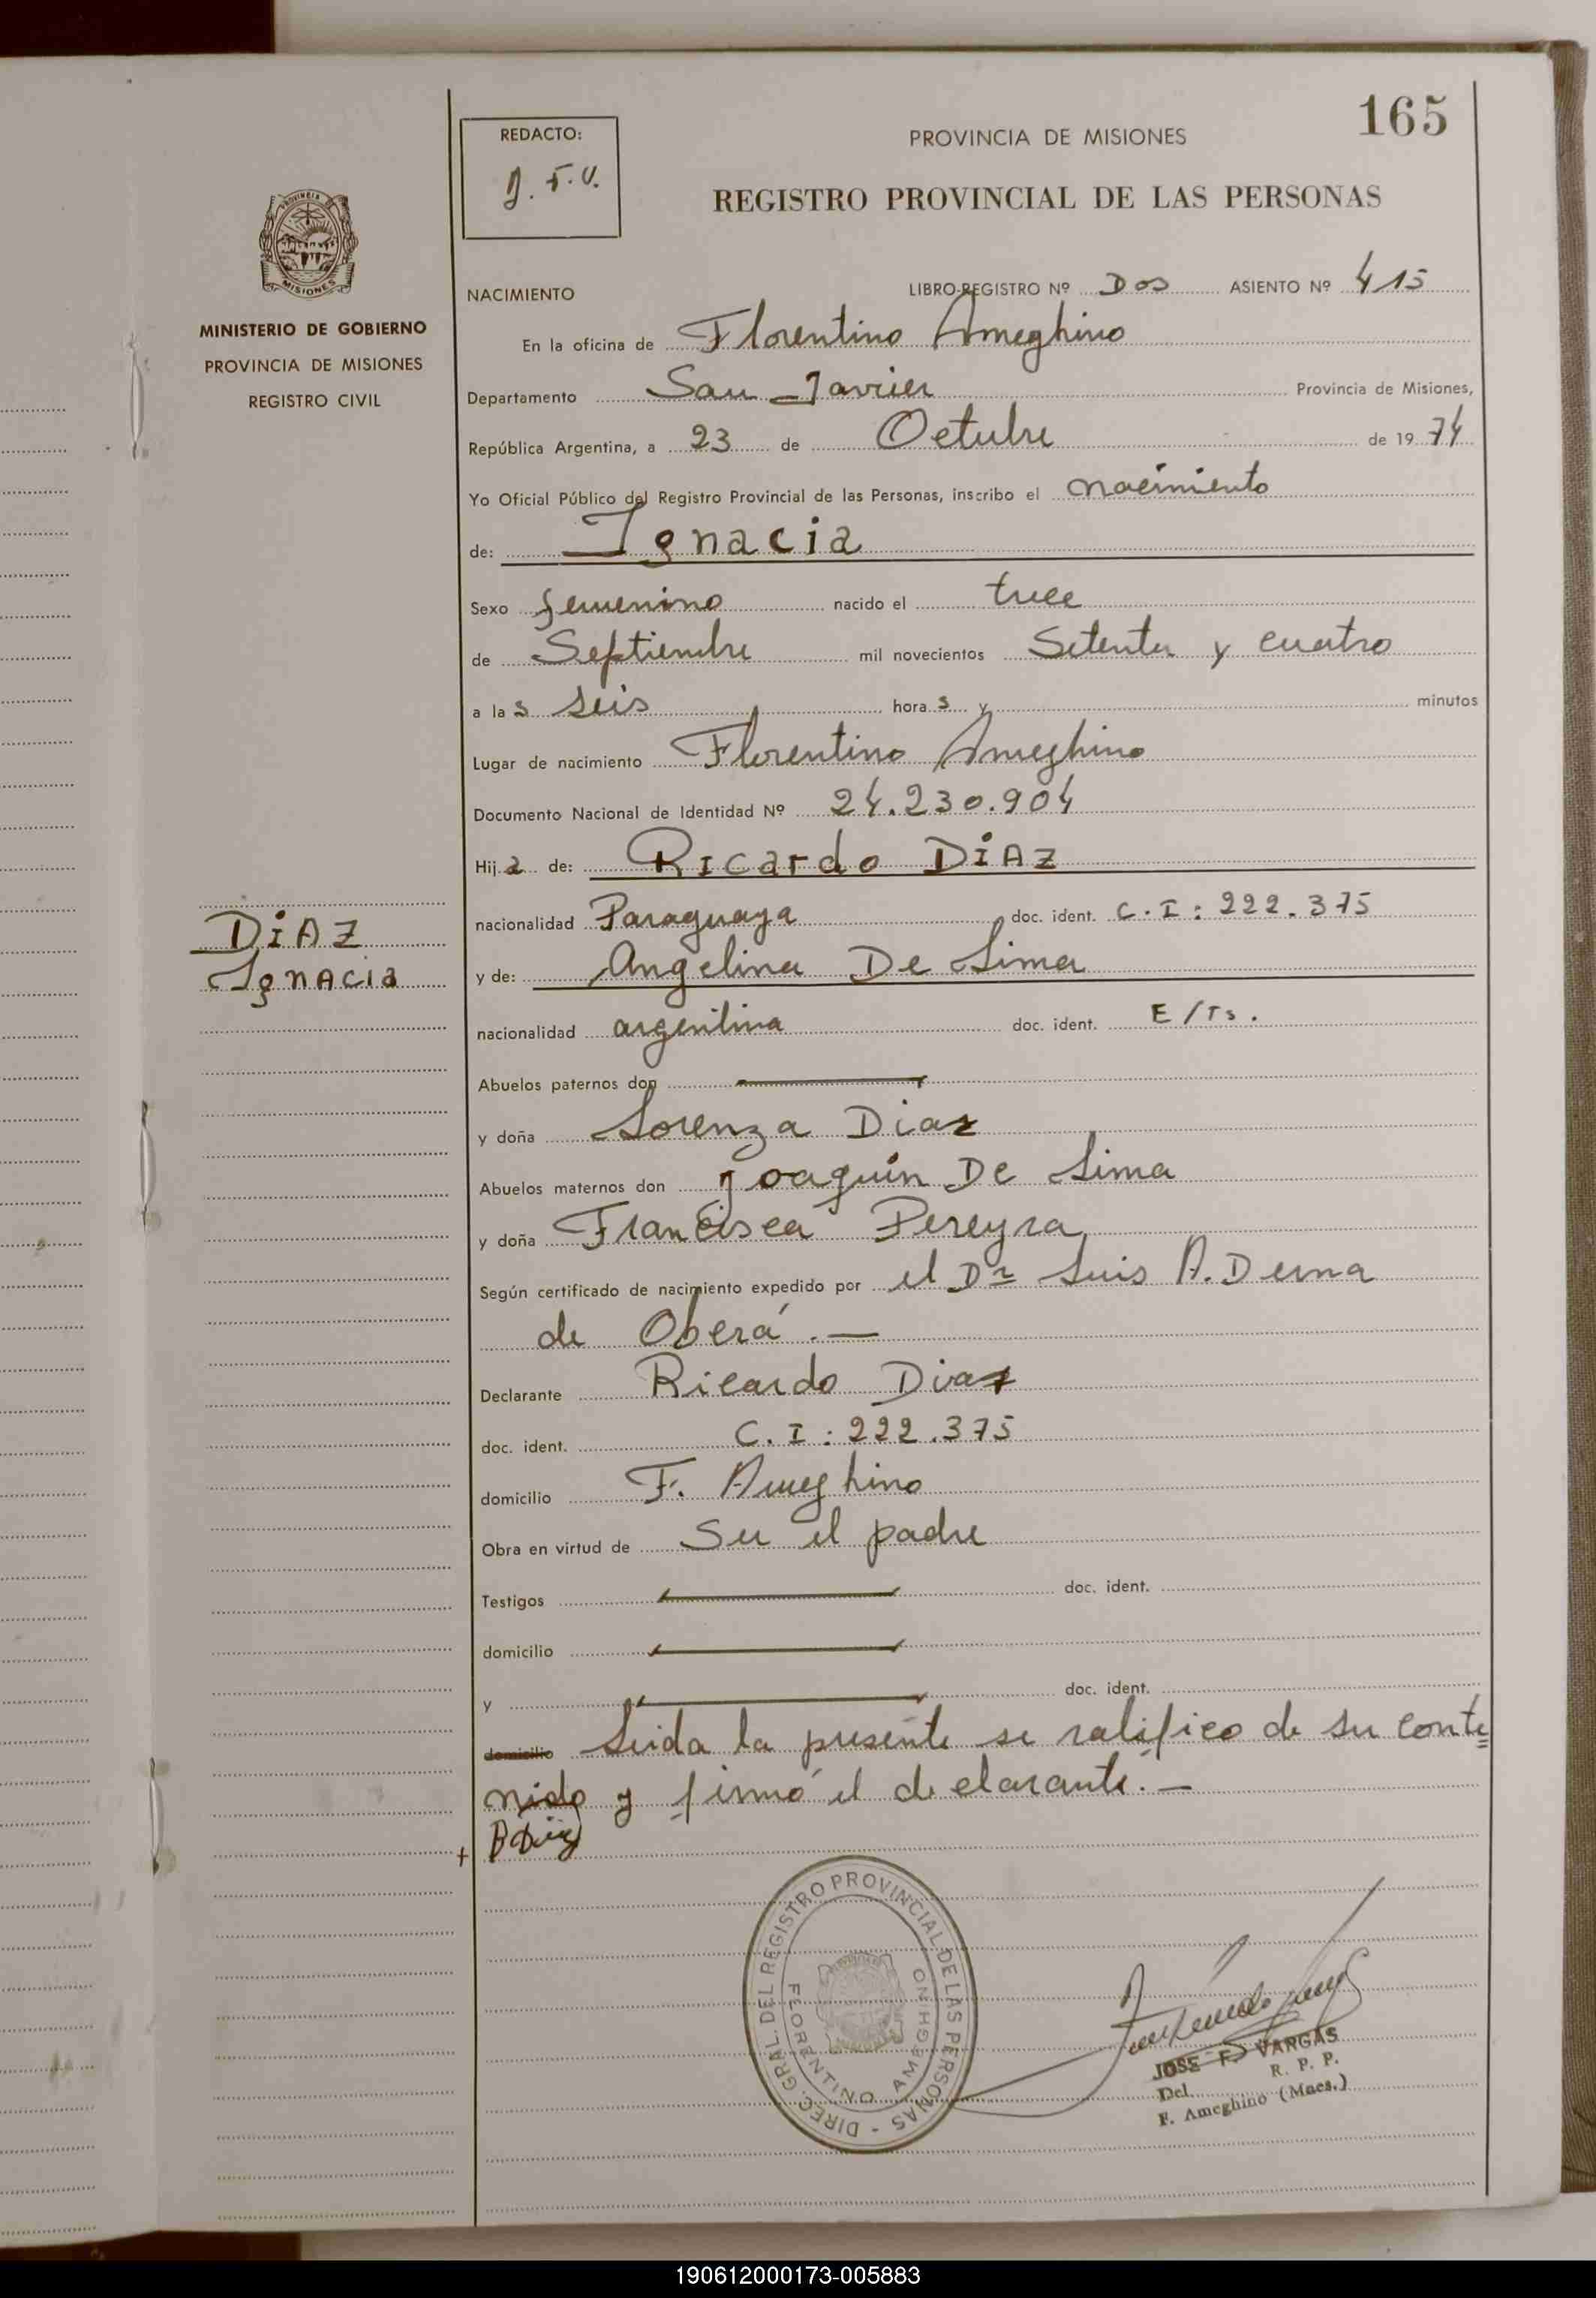 165
REDACTO:
J. F. V.
PROVINCIA DE MISIONES
REGISTRO PROVINCIAL DE LAS PERSONAS
MISIONES
MINISTERIO DE GOBIERNO
PROVINCIA DE MISIONES
REGISTRO CIVIL
NACIMIENTO LIBRO-REGISTRO Nº Dos ASIENTO Nº 415
En la oficina de Florentino Ameghino
Departamento San Javier Provincia de Misiones,
República Argentina, a 23 de Octubre de 19 74
Yo Oficial Público del Registro Provincial de las Personas, inscribo el nacimiento
de: Ignacia
Sexo femenino nacido el trece
de Septiembre mil novecientos Setenta y cuatro
a las seis horas y minutos
Lugar de nacimiento Florentino Ameghino
Documento Nacional de Identidad Nº 24.230.904
Hija de: Ricardo DiAZ
DiAZ
Ignacia
nacionalidad Paraguaya doc. ident. C.I: 222.375
y de: Angelina De Lima
nacionalidad argentina doc. ident. E/Ts.
Abuelos paternos don
y doña Lorenza Diaz
Abuelos maternos don Joaquín De Lima
y doña Francisca Pereyra
Según certificado de nacimiento expedido por el Dr Luis A. Derna
de Oberá.—
Declarante Ricardo Diaz
doc. ident. C.I: 222.375
domicilio F. Ameghino
Obra en virtud de Ser el padre
Testigos doc. ident.
domicilio
y doc. ident.
domicilio Leida la presente se ratifico de su conte
nido y firmó el declarante.—
+ R Diaz
DIREC. GRAL. DEL REGISTRO PROVINCIAL DE LAS PERSONAS -
FLORENTINO AMEGHINO
JOSE F. VARGAS
Del. R. P. P.
F. Ameghino (Mnes.)
190612000173-005883